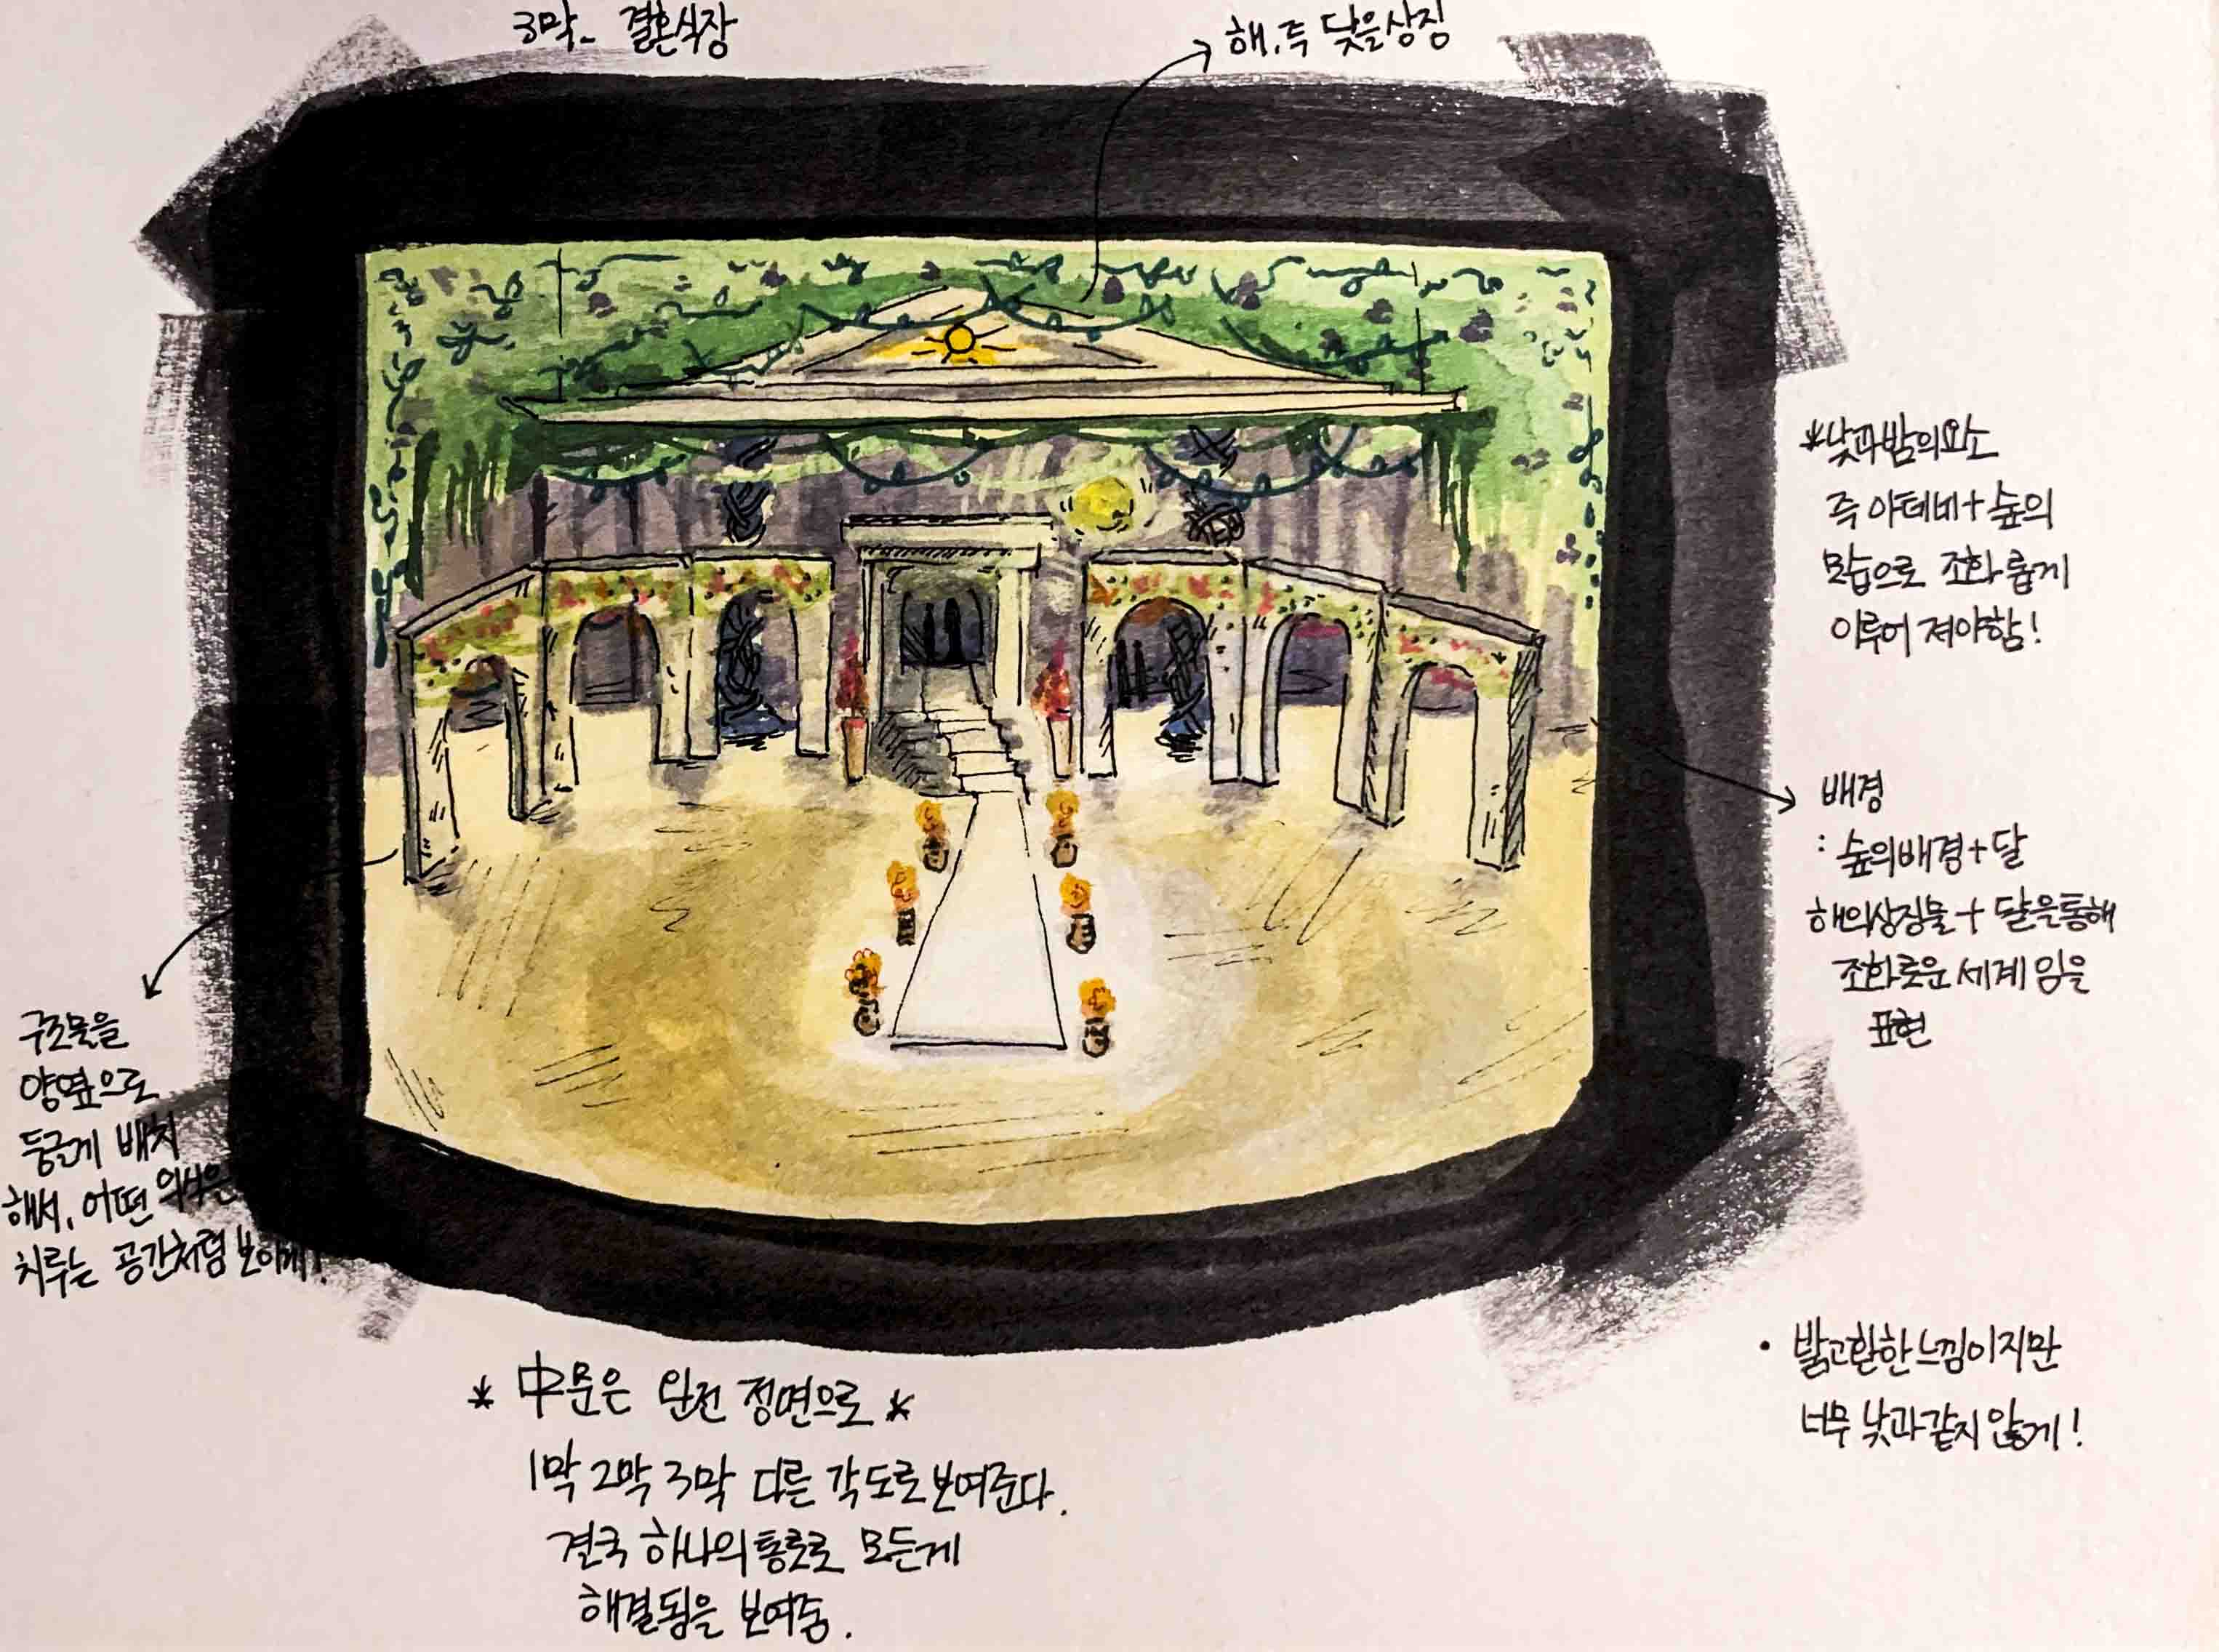 3막- 결혼식장
해, 즉 낮을상징
*낮과밤의요소
즉 아테네+숲의
모습으로 조화롭게
이루어 져야함!
배경
: 숲의배경+달
해의상징물+달을통해
조화로운 세계 임을
표현
구조물을
양옆으로
둥글게 배치
해서, 어떤 의식을
치루는 공간처럼 보이게!
* 中문은 완전 정면으로 *
1막 2막 3막 다른 각도로보여준다.
결국 하나의통로로 모든게
해결됨을 보여줌.
• 밝고환한느낌이지만
너무 낮과같지 않게!